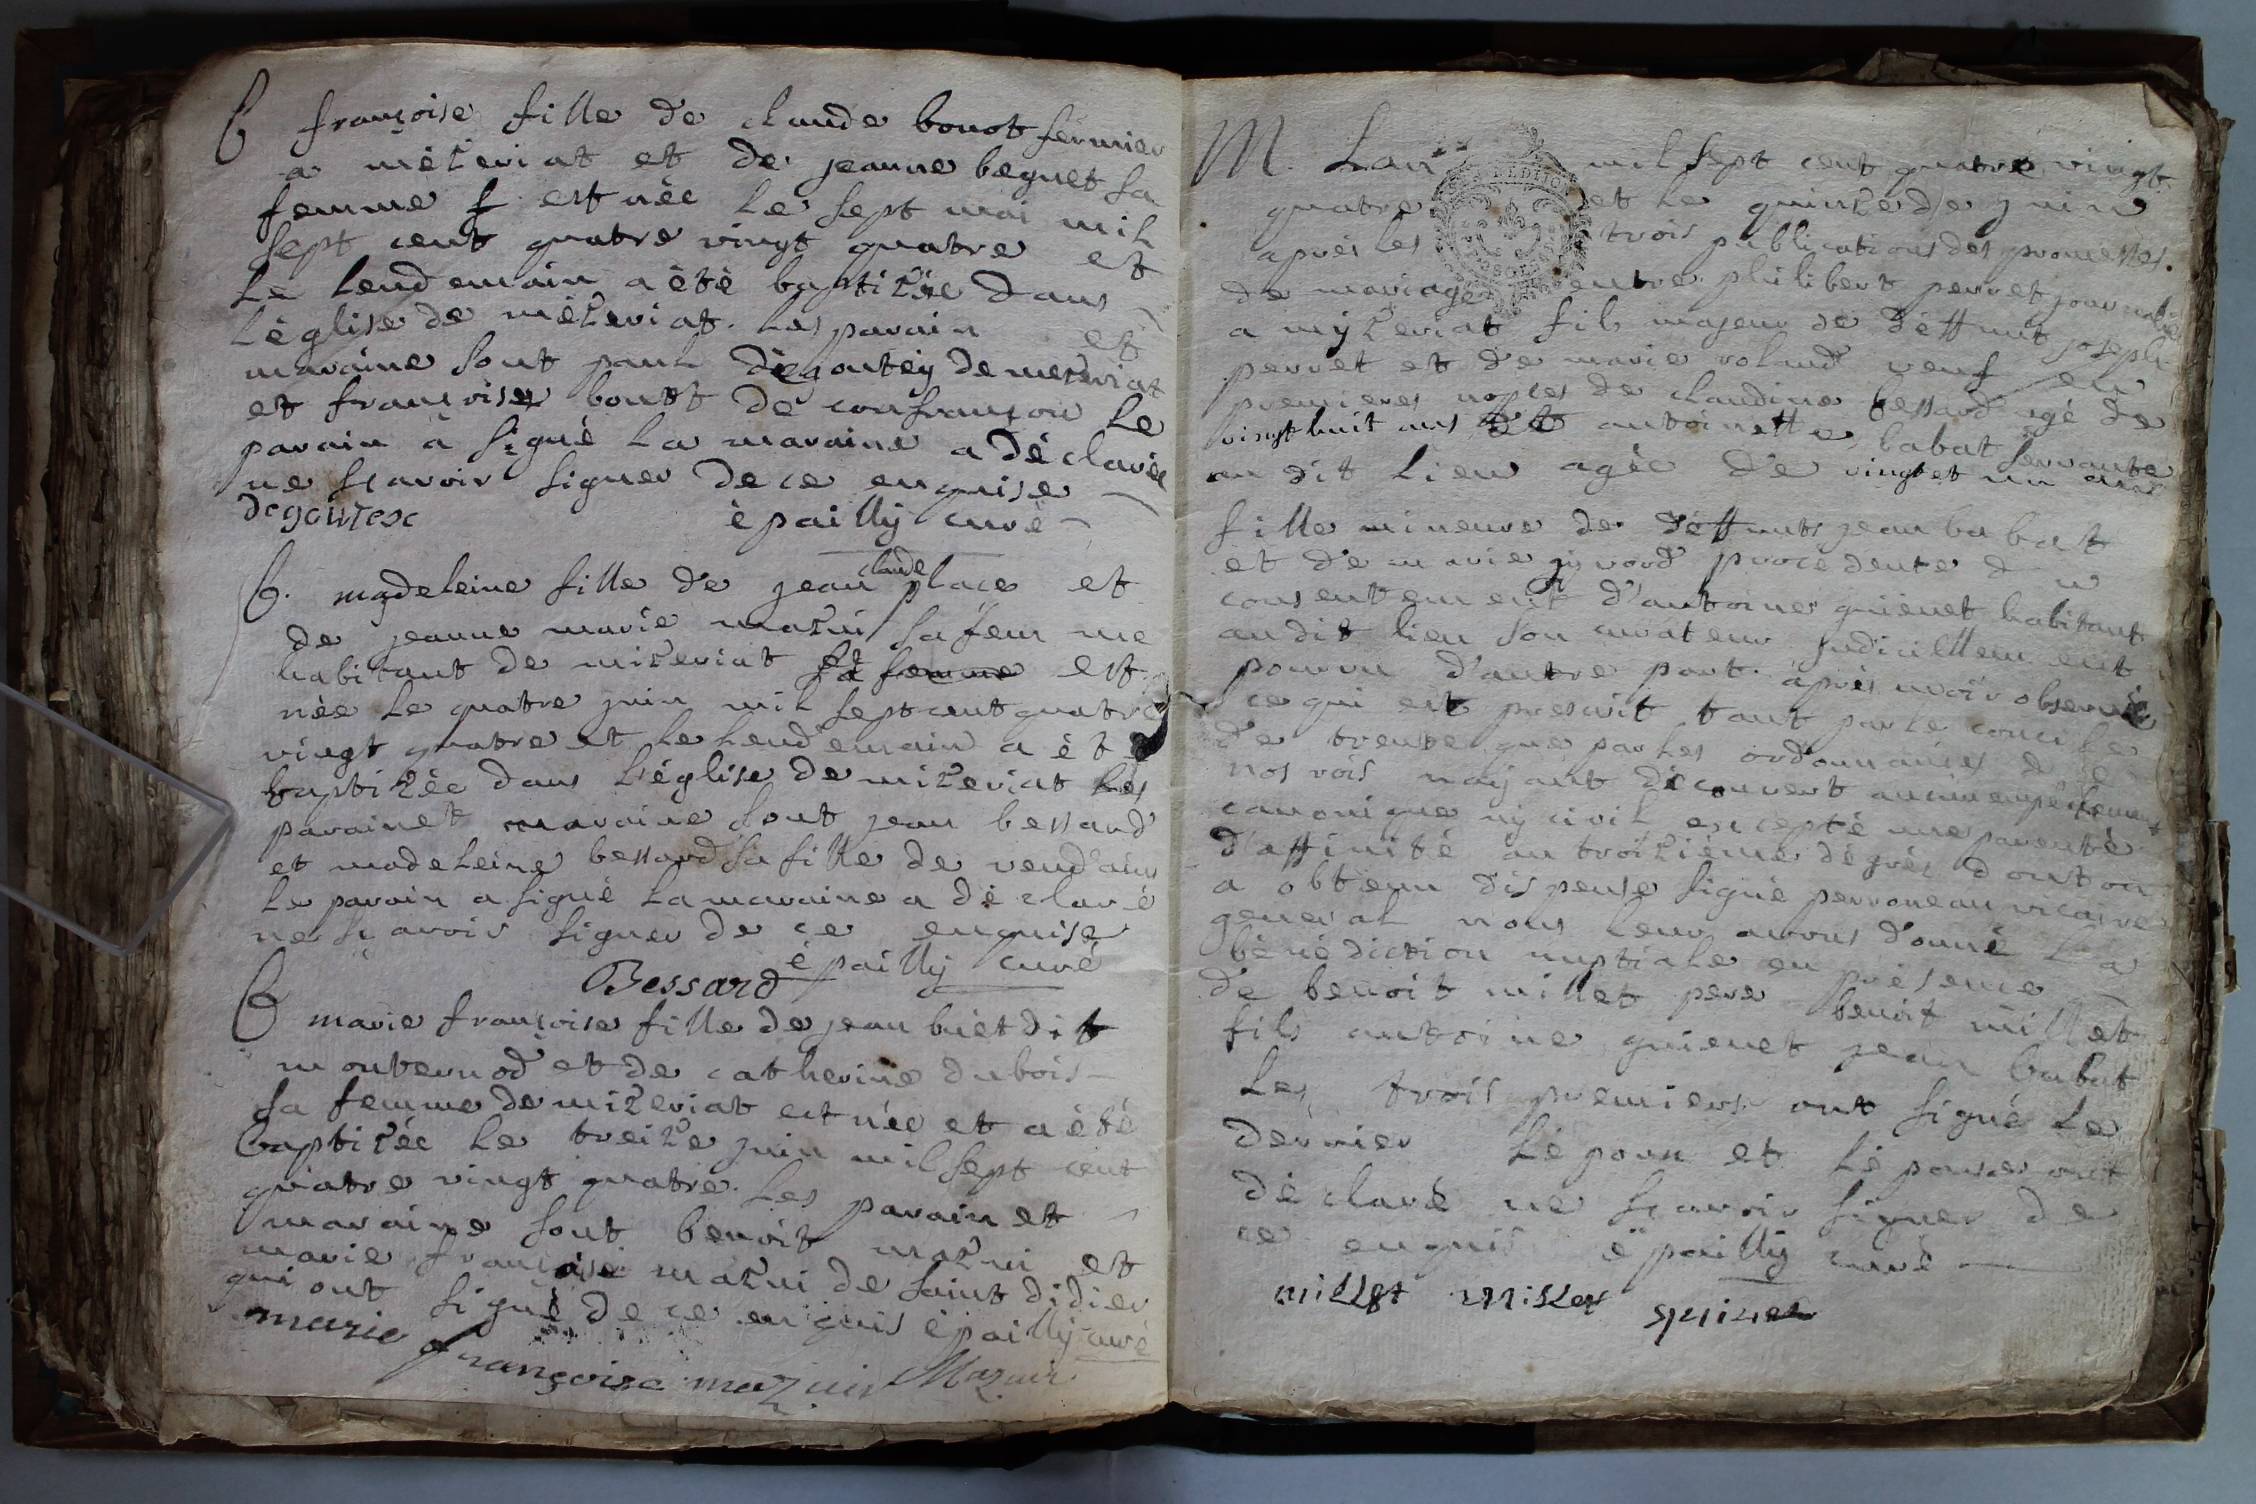 B françoise fille de claude bouot fermier
a mèzeriat et de jeanne beguet sa
femme f est née le sept mai mil
sept cent quatre vingt quatre et
le lendemain a été baptizée dans
l'èglise de mèzeriat. les parain et
maraine sont paul dégoutey de mezeriat
et françoise bouot de confrançon le
parain a signé la maraine a déclaréé
ne sçavoir signer de ce enquise
degoutese èpailly curé
B. magdeleine fille de jean claude place et
de jeanne marie mazui sa femme
habitant de mizeriat sa femme est
née le quatre juin mil sept cent quatre
vingt quatre et le lendemain a été
baptizée dans l'église de mizeriat les
parain et maraine sont jean bessard
et madeleine bessard sa fille de vendains
le parain a signé la maraine a déclaré
ne sçavoir signer de ce enquise
Bessard èpailly curé
B marie françoise fille de jean buet dit
monternod et de catherine dubois
sa femme de mizeriat est née et a été
baptizée le treize juin mil sept cent
quatre vingt quatre. les parain et
maraine sont benoit mazui et
marie françoise mazui de saint didier
qui ont signé de ce enquis èpailly curé
marie françoise mazuir Mazuir
M. Lan mil sept cent quatre vingt
quatre et le quinze de juin
après les trois publications des promesses
de mariage entre philibert perret journalier
a myzeriat fils majeur de déffunt joseph
perret et de marie rolend veuf en
premieres nopces de claudine bessard agé de
vingt huit ans et antoinette babat servante
au dit lieu agée de vingt et un ans
fille mineure de déffunts jean babat
et de marie procedente du
consentement d'antoine guienet habitant
audit lieu son curateur judiciellement
pourvu d'autre part. après avoir observé
ce qui est prescrit tant par le concile
de trente que par les ordonnances de
nos rois n'ayant découvert aucun empéchement
canonique ny civil excepté une parenté
d'affinité au troizième dégrés dont on
a obtenu dispense signé perroneau vicaire
general nous leur avons donné la
bénédiction nuptiale en présence
de benoit millet pere benoit millet
fils antoine guienet jean babat
les trois premiers ont signé le
dernier l'époux et l'épouse ont
déclaré ne sçavoir signer de
ce enquis èpailly curé
millet miller guinet